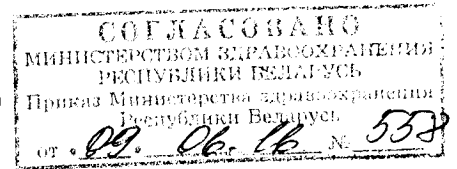 СОГЛАСОВАНО
МИНИСТЕРСТВОМ ЗДРАВООХРАНЕНИЯ
РЕСПУБЛИКИ БЕЛАРУСЬ
Приказ Министерства здравоохранения
Республики Беларусь
от 09. 06. 16 № 558